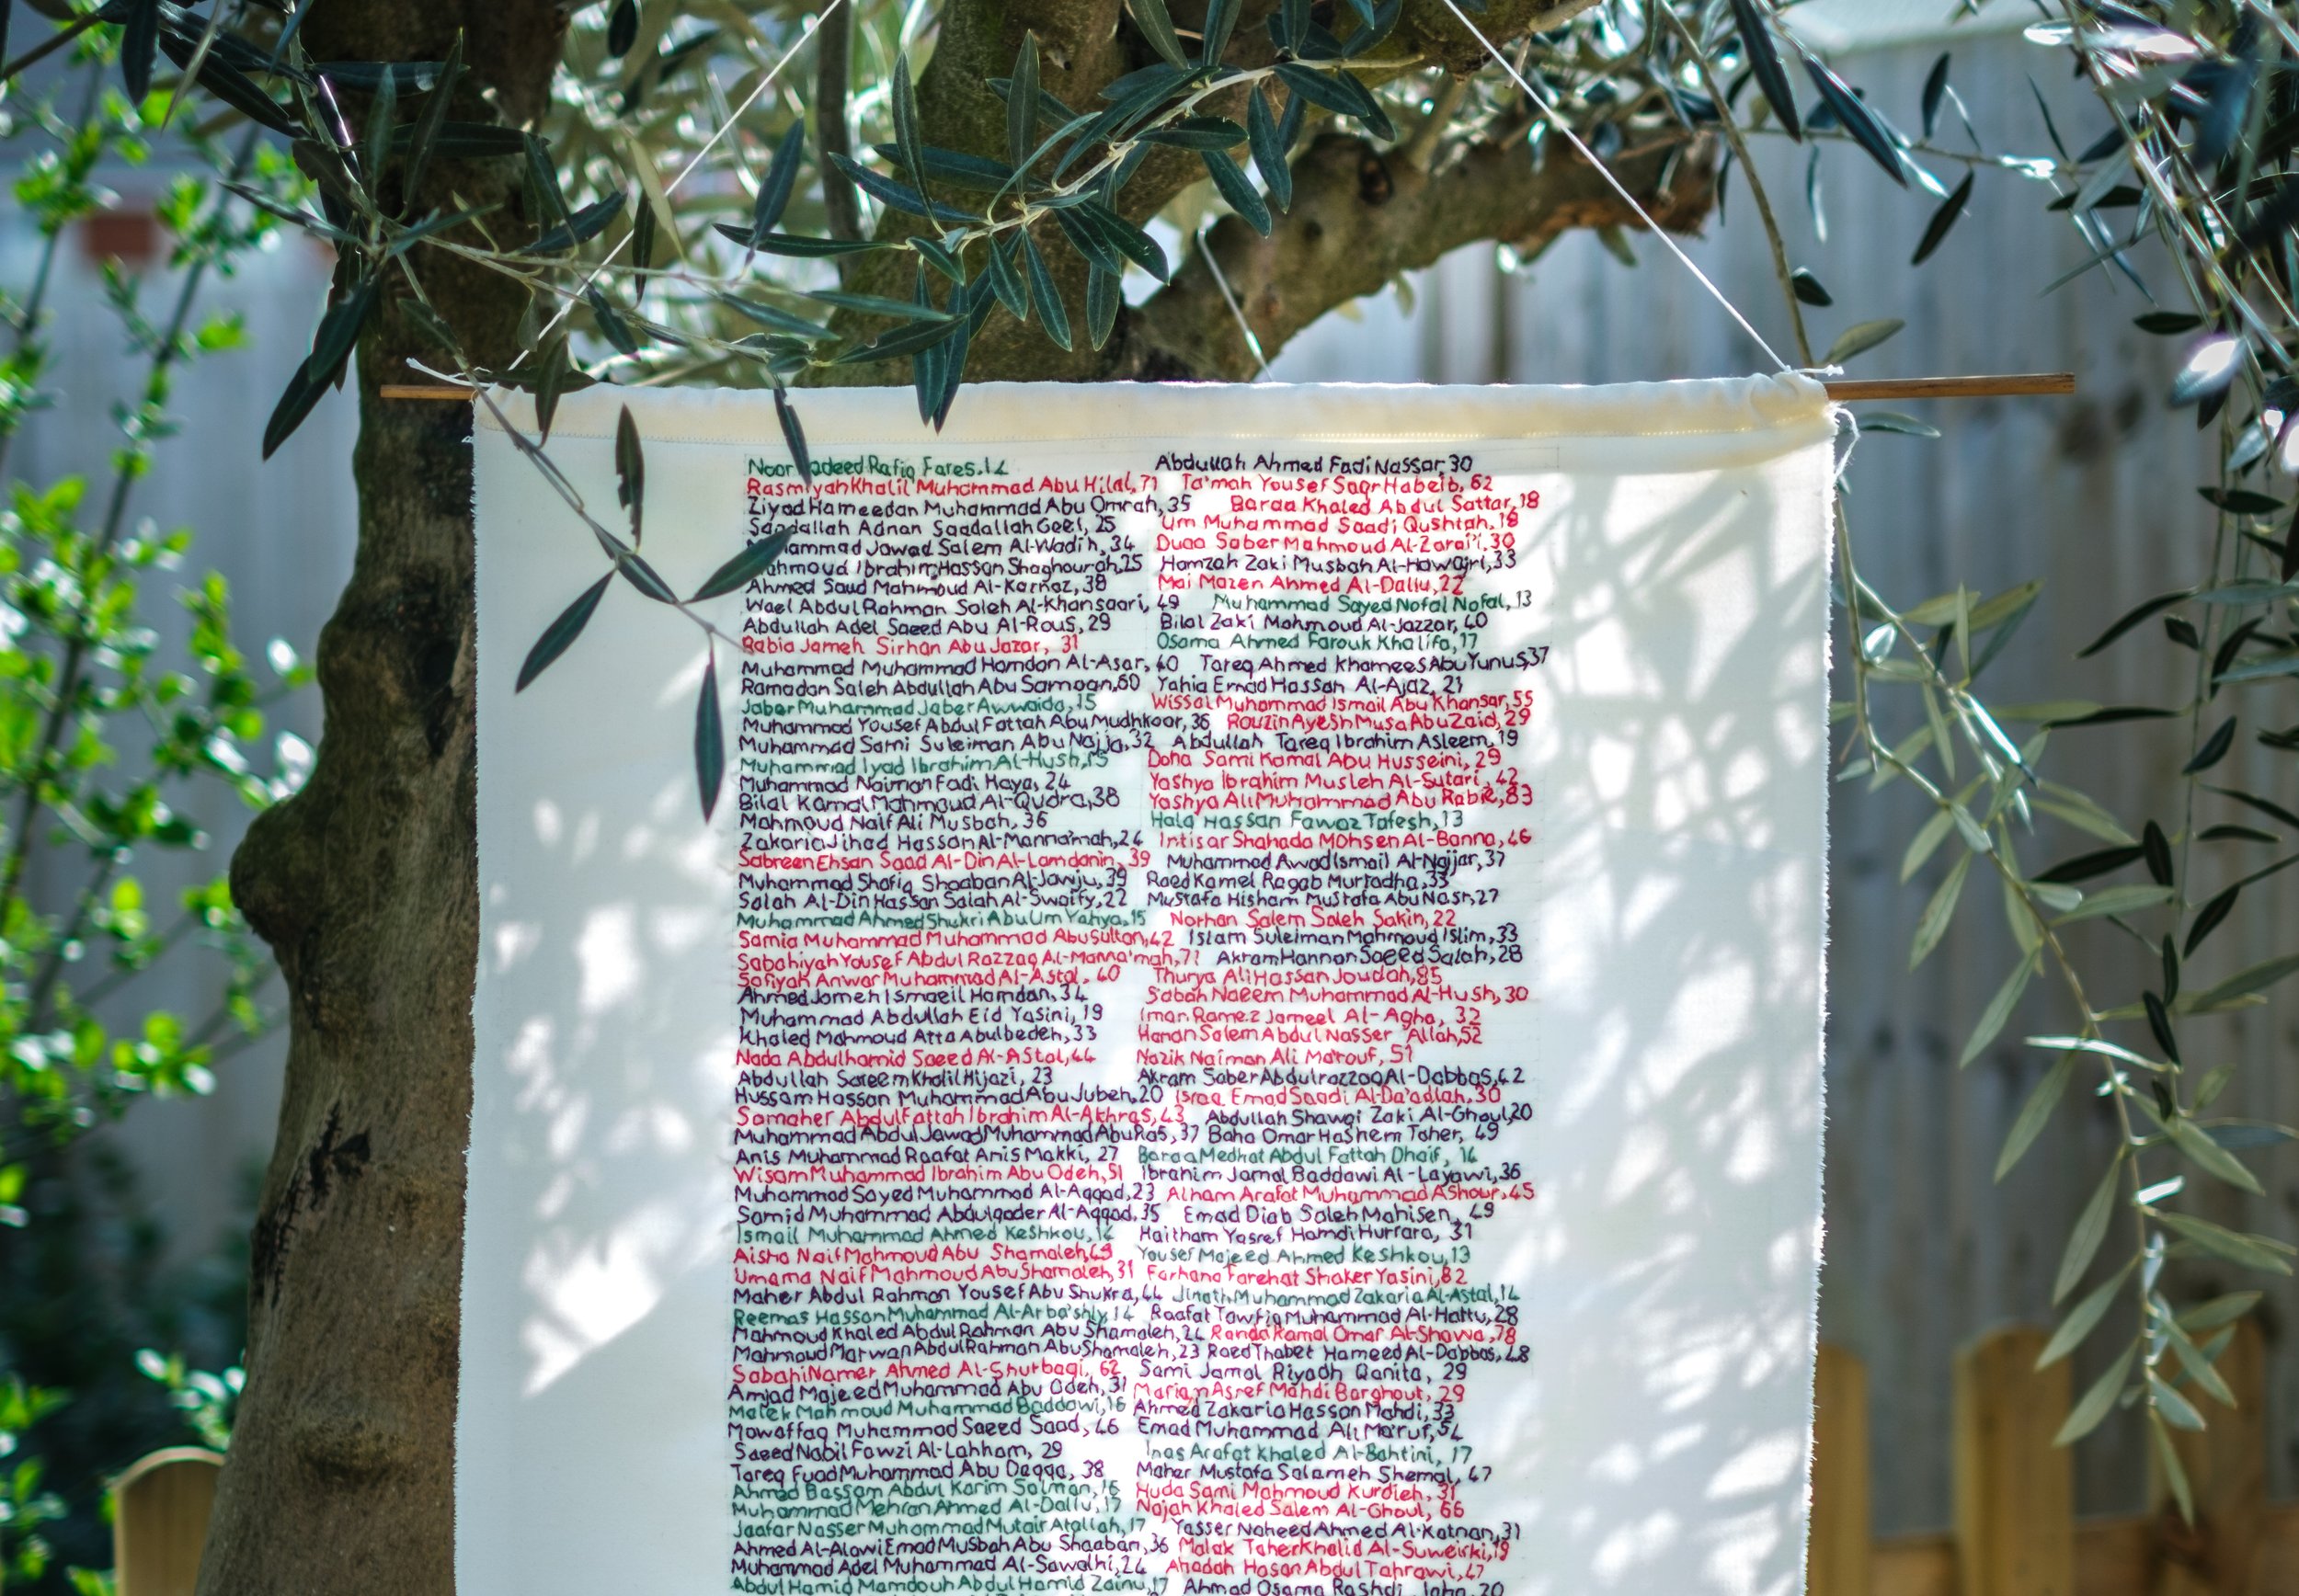 Noor Rafiq Fares, 12 Abdullah Ahmed Fadi Nassar, 30
Rasmiyah Khalil Muhammad Abu Hilal, 71 Ta'mah Yousef Saqr Habeib, 62
Ziyad Hameedan Muhammad Abu Omrah, 35 Baraa Khaled Abdul Sattar, 18
Saadallah Adnan Saadallah Geel, 25 Um Muhammad Saadi Qushtah, 18
Muhammad Jawad Salem Al-Wadih, 34 Duaa Saber Mahmoud Al-Zarai'i, 30
Mahmoud Ibrahim Hassan Shaghourah, 25 Hamzah Zaki Musbah Al-Hawajri, 33
Ahmed Saud Mahmoud Al-Karnaz, 38 Mai Mazen Ahmed Al-Dallu, 22
Wael Abdul Rahman Saleh Al-Khansaari, 49 Muhammad Sayed Nofal Nofal, 13
Abdullah Adel Saeed Abu Al-Rous, 29 Bilal Zaki Mahmoud Al-Jazzar, 40
Rabia Jameh Sirhan Abu Jazar, 31 Osama Ahmed Farouk Khalifa, 17
Muhammad Muhammad Hamdan Al-Asar, 40 Tareq Ahmed Khamees Abu Yunus, 37
Ramadan Saleh Abdullah Abu Samoan, 60 Yahia Emad Hassan Al-Ajaz, 21
Jaber Muhammad Jaber Awwaida, 15 Wissal Muhammad Ismail Abu Khansar, 55
Muhammad Yousef Abdul Fattah Abu Mudhkoor, 36 Rouzin Ayesh Musa Abu Zaid, 29
Muhammad Sami Suleiman Abu Najja, 32 Abdullah Tareq Ibrahim Asleem, 19
Muhammad Iyad Ibrahim Al-Hush, 15 Doha Sami Kamal Abu Husseini, 29
Muhammad Naiman Fadi Haya, 24 Yashya Ibrahim Musleh Al-Sutari, 42
Bilal Kamal Mahmoud Al-Qudra, 38 Yashya Ali Muhammad Abu Rabie, 83
Mahmoud Naif Ali Musbah, 36 Hala Hassan Fawaz Tafesh, 13
Zakaria Jihad Hassan Al-Manna'mah, 24 Intisar Shahada Mohsen Al-Banna, 46
Sabreen Ehsan Saad Al-Din Al-Lamdanin, 39 Muhammad Awad Ismail Al-Najjar, 37
Muhammad Shafiq Shaaban Al-Jawju, 39 Raed Kamel Ragab Murtadha, 33
Salah Al-Din Hassan Salah Al-Swaify, 22 Mustafa Hisham Mustafa Abu Nasr, 27
Muhammad Ahmed Shukri Abu Um Yahya, 15 Norhan Salem Saleh Sakin, 22
Samia Muhammad Muhammad Abu Sultan, 42 Islam Suleiman Mahmoud Islim, 33
Sabahiyah Yousef Abdul Razzaq Al-Manna'mah, 71 Akram Hannan Saeed Salah, 28
Safiyah Anwar Muhammad Al-Astal, 40 Thurya Ali Hassan Joudah, 85
Ahmed Jomeh Ismaeil Hamdan, 34 Sabah Naeem Muhammad Al-Hush, 30
Muhammad Abdullah Eid Yasini, 19 Iman Ramez Jameel Al-Agha, 32
Khaled Mahmoud Atta Abulbedeh, 33 Hanan Salem Abdul Nasser Allah, 52
Nada Abdulhamid Saeed Al-Astal, 44 Nazik Naiman Ali Ma'rouf, 51
Abdullah Sareem Khalil Hijazi, 23 Akram Saber Abdulrazzaq Al-Dabbas, 42
Hussam Hassan Muhammad Abu Jubeh, 20 Israa Emad Saadi Al-Da'adlah, 30
Samaher Abdul Fattah Ibrahim Al-Akhras, 43 Abdullah Shawqi Zaki Al-Ghoul, 20
Muhammad Abdul Jawad Muhammad Abu Ras, 37 Baha Omar Hashem Taher, 49
Anis Muhammad Raafat Anis Makki, 27 Baraa Medhat Abdul Fattah Dhaif, 14
Wisam Muhammad Ibrahim Abu Odeh, 51 Ibrahim Jamal Baddawi Al-Layawi, 36
Muhammad Sayed Muhammad Al-Aqqad, 23 Alham Arafat Muhammad Ashour, 45
Samid Muhammad Abdulqader Al-Aqqad, 35 Emad Diab Saleh Mahisen, 49
Ismail Muhammad Ahmed Keshkou, 14 Haitham Yasref Hamdi Hurrara, 31
Aisha Naif Mahmoud Abu Shamaleh, 49 Yousef Majeed Ahmed Keshkou, 13
Umama Naif Mahmoud Abu Shamaleh, 31 Farhana Farehat Shaker Yasini, 82
Maher Abdul Rahman Yousef Abu Shukra, 44 Jinath Muhammad Zakaria Al-Astal, 14
Reemas Hassan Muhammad Al-Arba'shly, 14 Raafat Tawfiq Muhammad Al-Hattu, 28
Mahmoud Khaled Abdul Rahman Abu Shamaleh, 24 Randa Kamal Omar Al-Shawa, 78
Mahmoud Marwan Abdul Rahman Abu Shamaleh, 23 Raed Thabet Hameed Al-Dabbas, 48
Sabahi Namer Ahmed Al-Shurbagi, 62 Sami Jamal Riyadh Qanita, 29
Amjad Majeed Muhammad Abu Odeh, 31 Marian Asref Mahdi Barghout, 29
Malek Mahmoud Muhammad Baddawi, 16 Ahmed Zakaria Hassan Mahdi, 33
Mowaffaq Muhammad Saeed Saad, 46 Emad Muhammad Ali Ma'ruf, 54
Saeed Nabil Fawzi Al-Lahham, 29 Inas Arafat Khaled Al-Bahtini, 17
Tareq Fuad Muhammad Abu Daqqa, 38 Maher Mustafa Salameh Shemal, 47
Ahmed Bassam Abdul Karim Salman, 16 Huda Sami Mahmoud Kurdieh, 31
Muhammad Mehran Ahmed Al-Dallu, 17 Najah Khaled Salem Al-Ghoul, 66
Jaafar Nasser Muhammad Mutair Atallah, 17 Yasser Naheed Ahmed Al-Katnan, 31
Ahmed Al-Alawi Emad Musbah Abu Shaaban, 36 Malak Taher Khalid Al-Suweirki, 19
Muhammad Adel Muhammad Al-Sawalhi, 24 Ahadah Hasan Abdul Tahrawi, 47
Abdul Hamid Mamdouh Abdul Hamid Zainu, 17 Ahmad Osama Rashdi 20